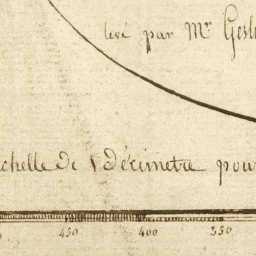 levé par Mr Gesl
chelle de 1 décimetre pour
450 400 350